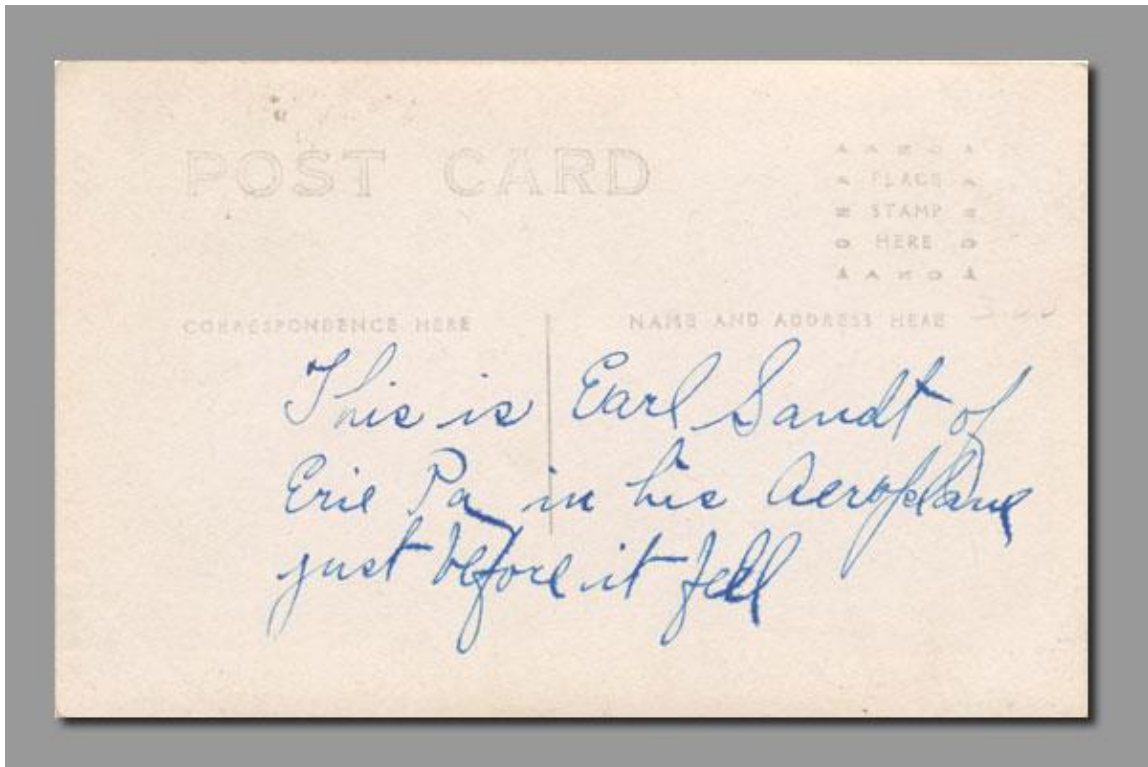 POST CARD
AZO
PLACE
STAMP
HERE
AZO
CORRESPONDENCE HERE
NAME AND ADDRESS HERE
This is Earl Sandt of
Erie Pa in his Aeroplane
just before it fell